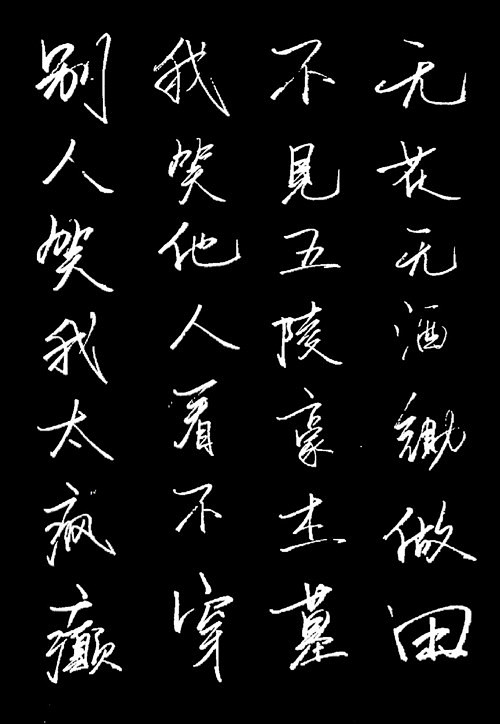 别人笑我太疯癲
我笑他人看不穿
不見五陵豪杰墓
无花无酒锄做田